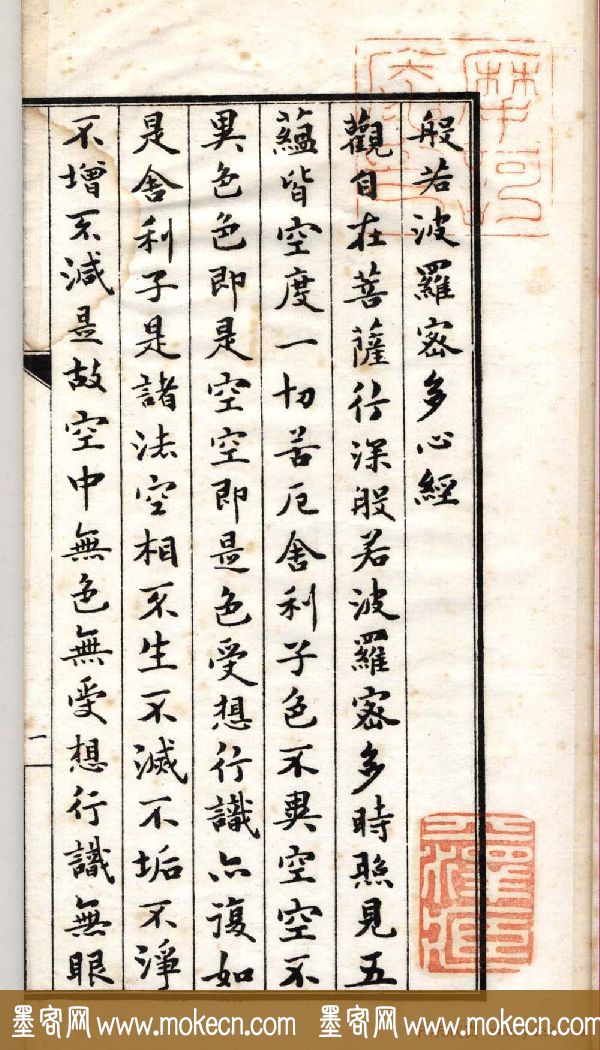 般若波羅密多心經
觀自在菩薩行深般若波羅密多時照見五
蘊皆空度一切苦厄舍利子色不異空空不
異色色即是空空即是色受想行識亦復如
是舍利子是諸法空相不生不滅不垢不淨
不增不減是故空中無色無受想行識無眼
一
墨客网 www.mokecn.com 墨客网 www.mokecn.com